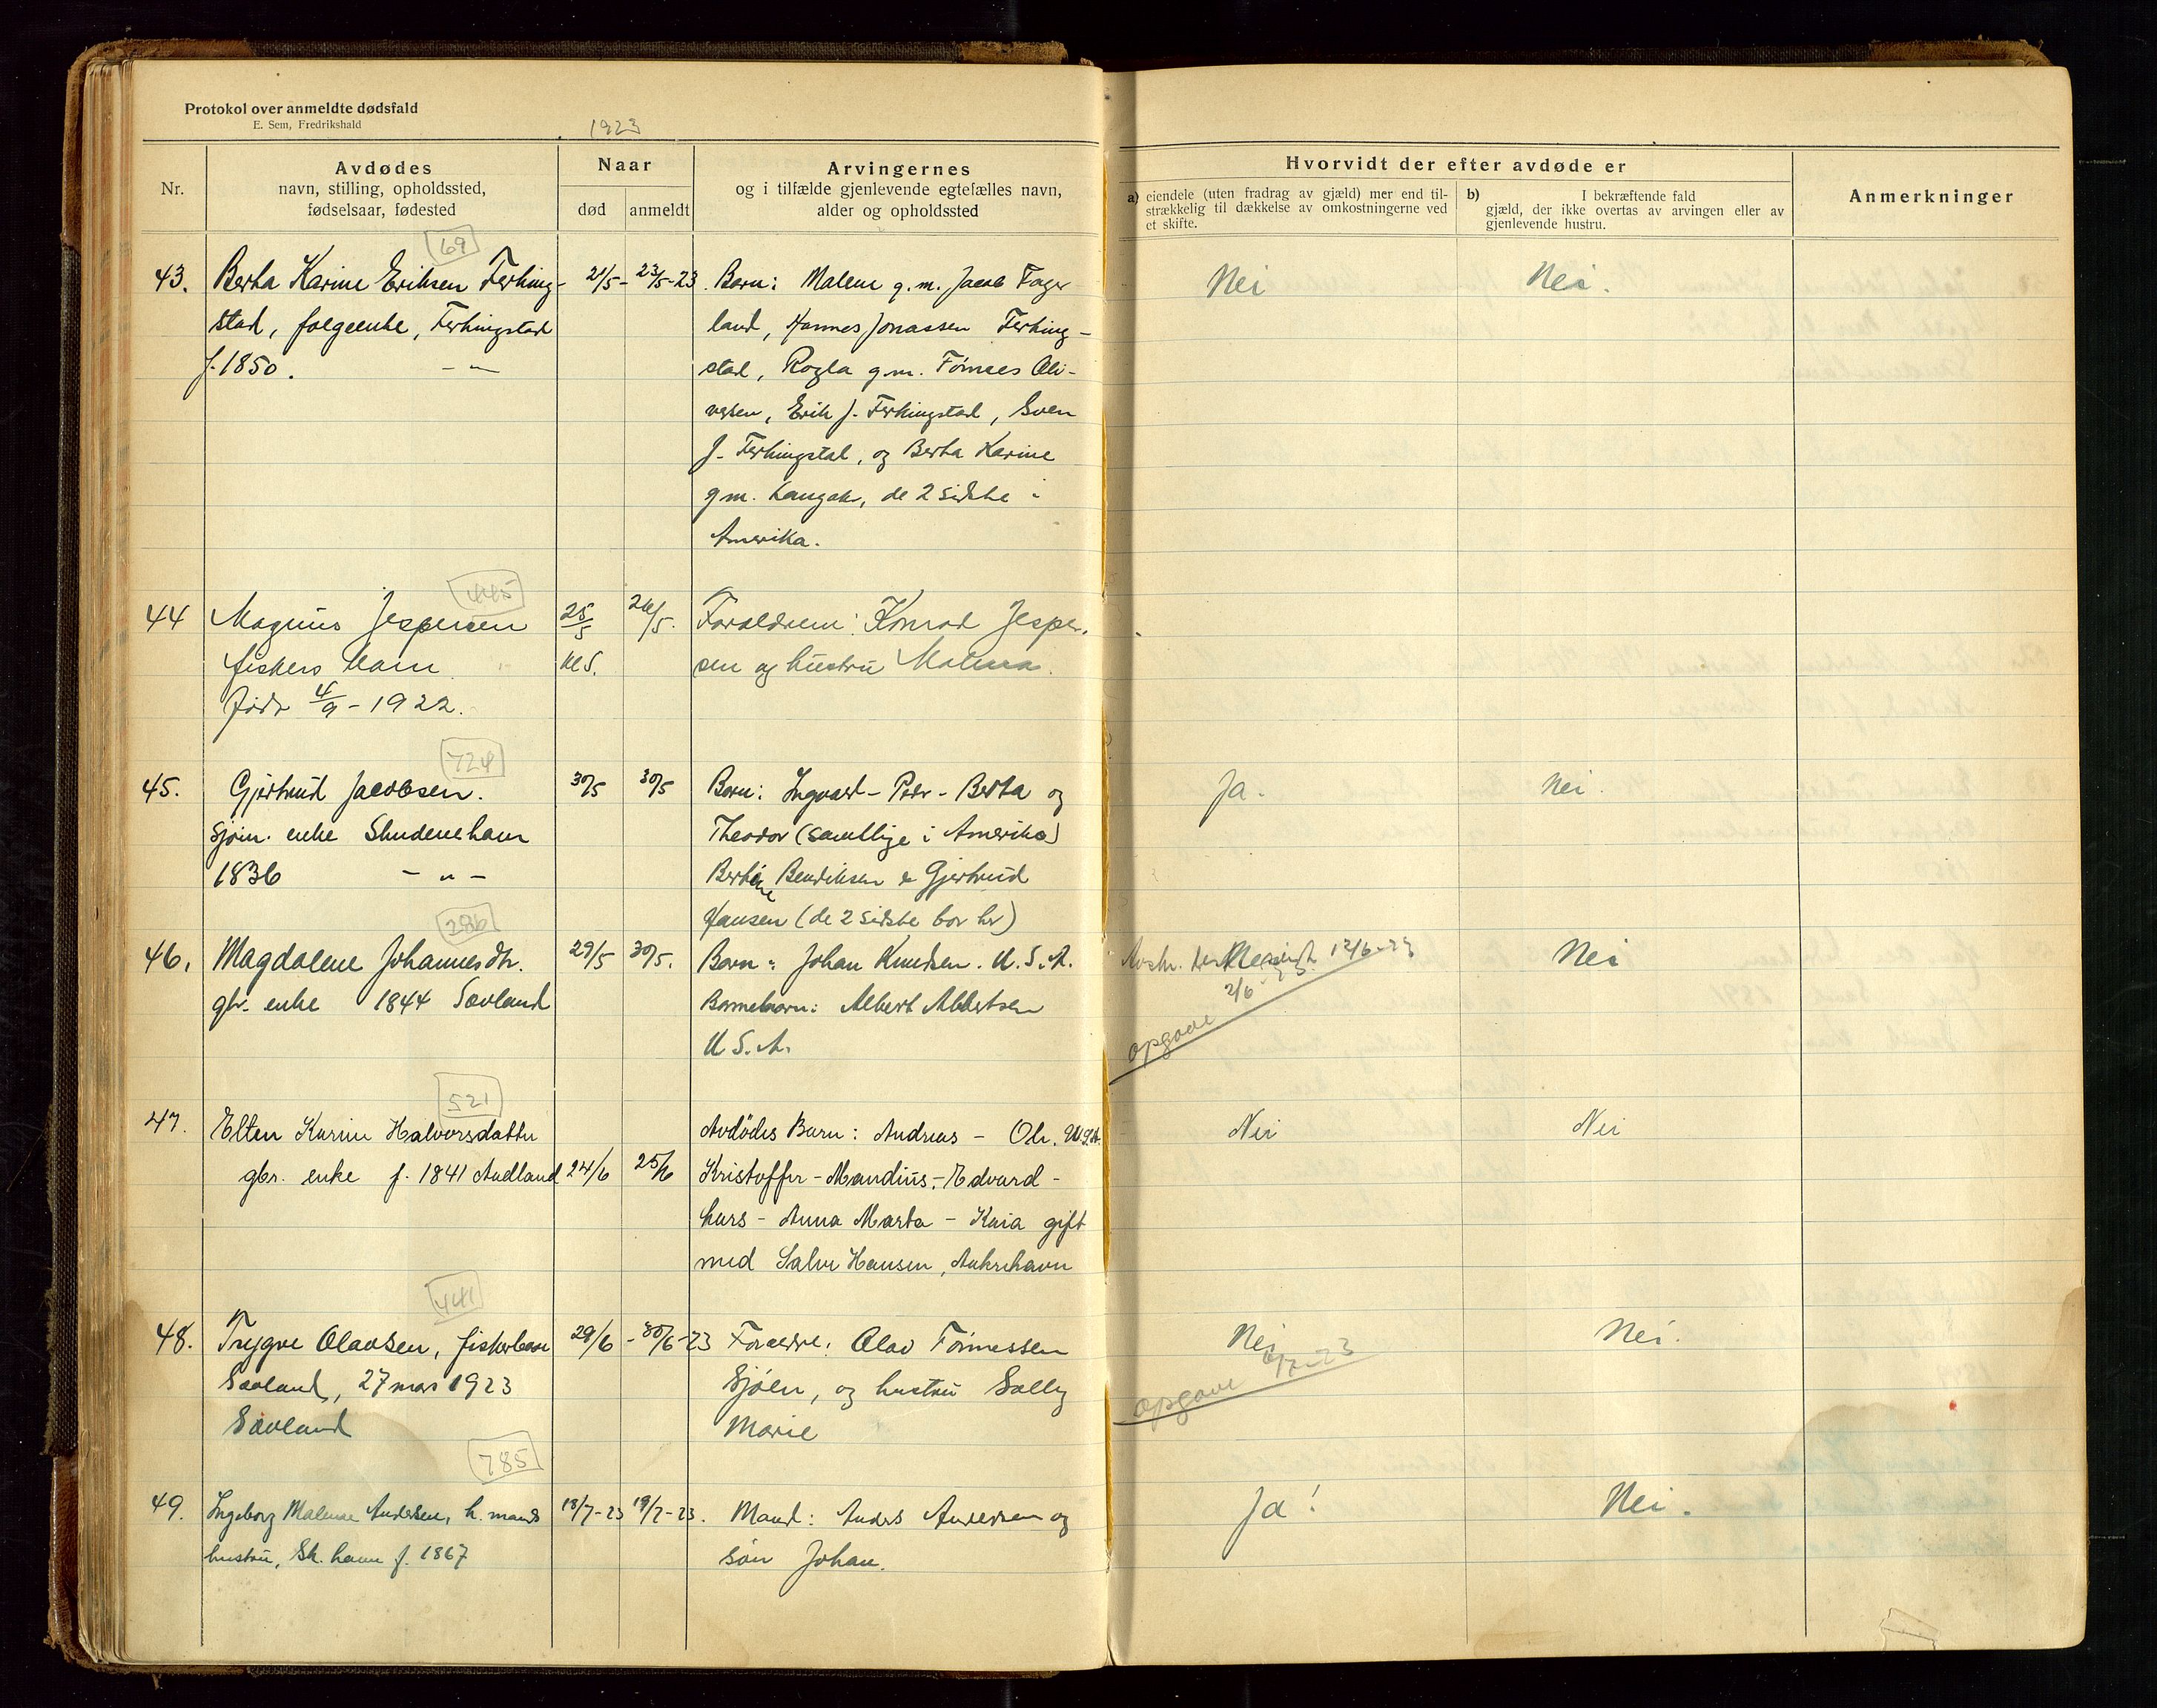 Protokol over anmeldte dødsfald
E. Sem, Fredrikshald
1923
Nr.
Avdødes
navn, stilling, opholdssted,
fødselsaar, fødested
Naar
død
anmeldt
Arvingernes
og i tilfælde gjenlevende egtefælles navn,
alder og opholdssted
Hvorvidt der efter avdøde er
a) eiendele (uten fradrag av gjæld) mer end til-
strækkelig til dækkelse av omkostningerne ved
et skifte.
b) I bekræftende fald
gjæld, der ikke overtas av arvingen eller av
gjenlevende hustru.
Anmerkninger
69
43. Berta Karine Eriksen Ferking- 21/5- 23/5-23. Børn: Malene g.m. Jacob Fager Nei Nei.
stad, folgeenke, Ferkingstad land, Hannes Jonassen Ferking-
f. 1850. - " - stad, Ragla g.m. Tønnes Oli-
versen, Erik J. Ferkingstad, Sven
J. Ferkingstad, og Berta Karine
g.m. Langaker, de 2 sidste i
Amerika.
445
44 Magnus Jespersen 25/5 26/5. Forældrene: Konrad Jesper-
fiskers barn sen og hustru Malena.
født 4/9-1922.
724
45. Gjertrud Jacobsen. 30/5 30/5 Børn: Ingvald - Peder - Berta og Ja. Nei.
sjøm. enke Skudeneshavn Theodor (samtlige i Amerika)
1836 - " - Bertine Bendiksen & Gjertrud
Hansen (de 2 sidste bor her)
286
46. Magdalene Johannesdtr. 29/5 30/5. Børn: Johan Knudsen. U.S.A. Nei 12/6-23 Nei
gbr. enke 1844 Sævland Barnebarn: Albert Albertsen 2/6-23
U.S.A. opgave
521
47. Elten Karine Halvorsdatter Avdødes Barn: Andreas - Ole. U.S.A. Nei Nei
gbr. enke f. 1841 Audland 24/6 25/6 Kristoffer - Mandius - Edvard -
Lars - Anna Marta - Kaia gift
med Salve Hansen, Aakrehavn
441
48. Trygve Olavsen, fiskerbarn 29/6 - 30/6-23 Forældre: Olav Tønnessen Nei Nei.
Sævland, 27 mars 1923 Sjøen, og hustru Solly opgave 4/7-23
Sævland Marie
785
49. Ingeborg Malene Andersen, h. mands 18/7-23 19/7-23. Mand: Anders Andersen og Ja! Nei.
hustru, Sk. havn f. 1867 søn Johan.